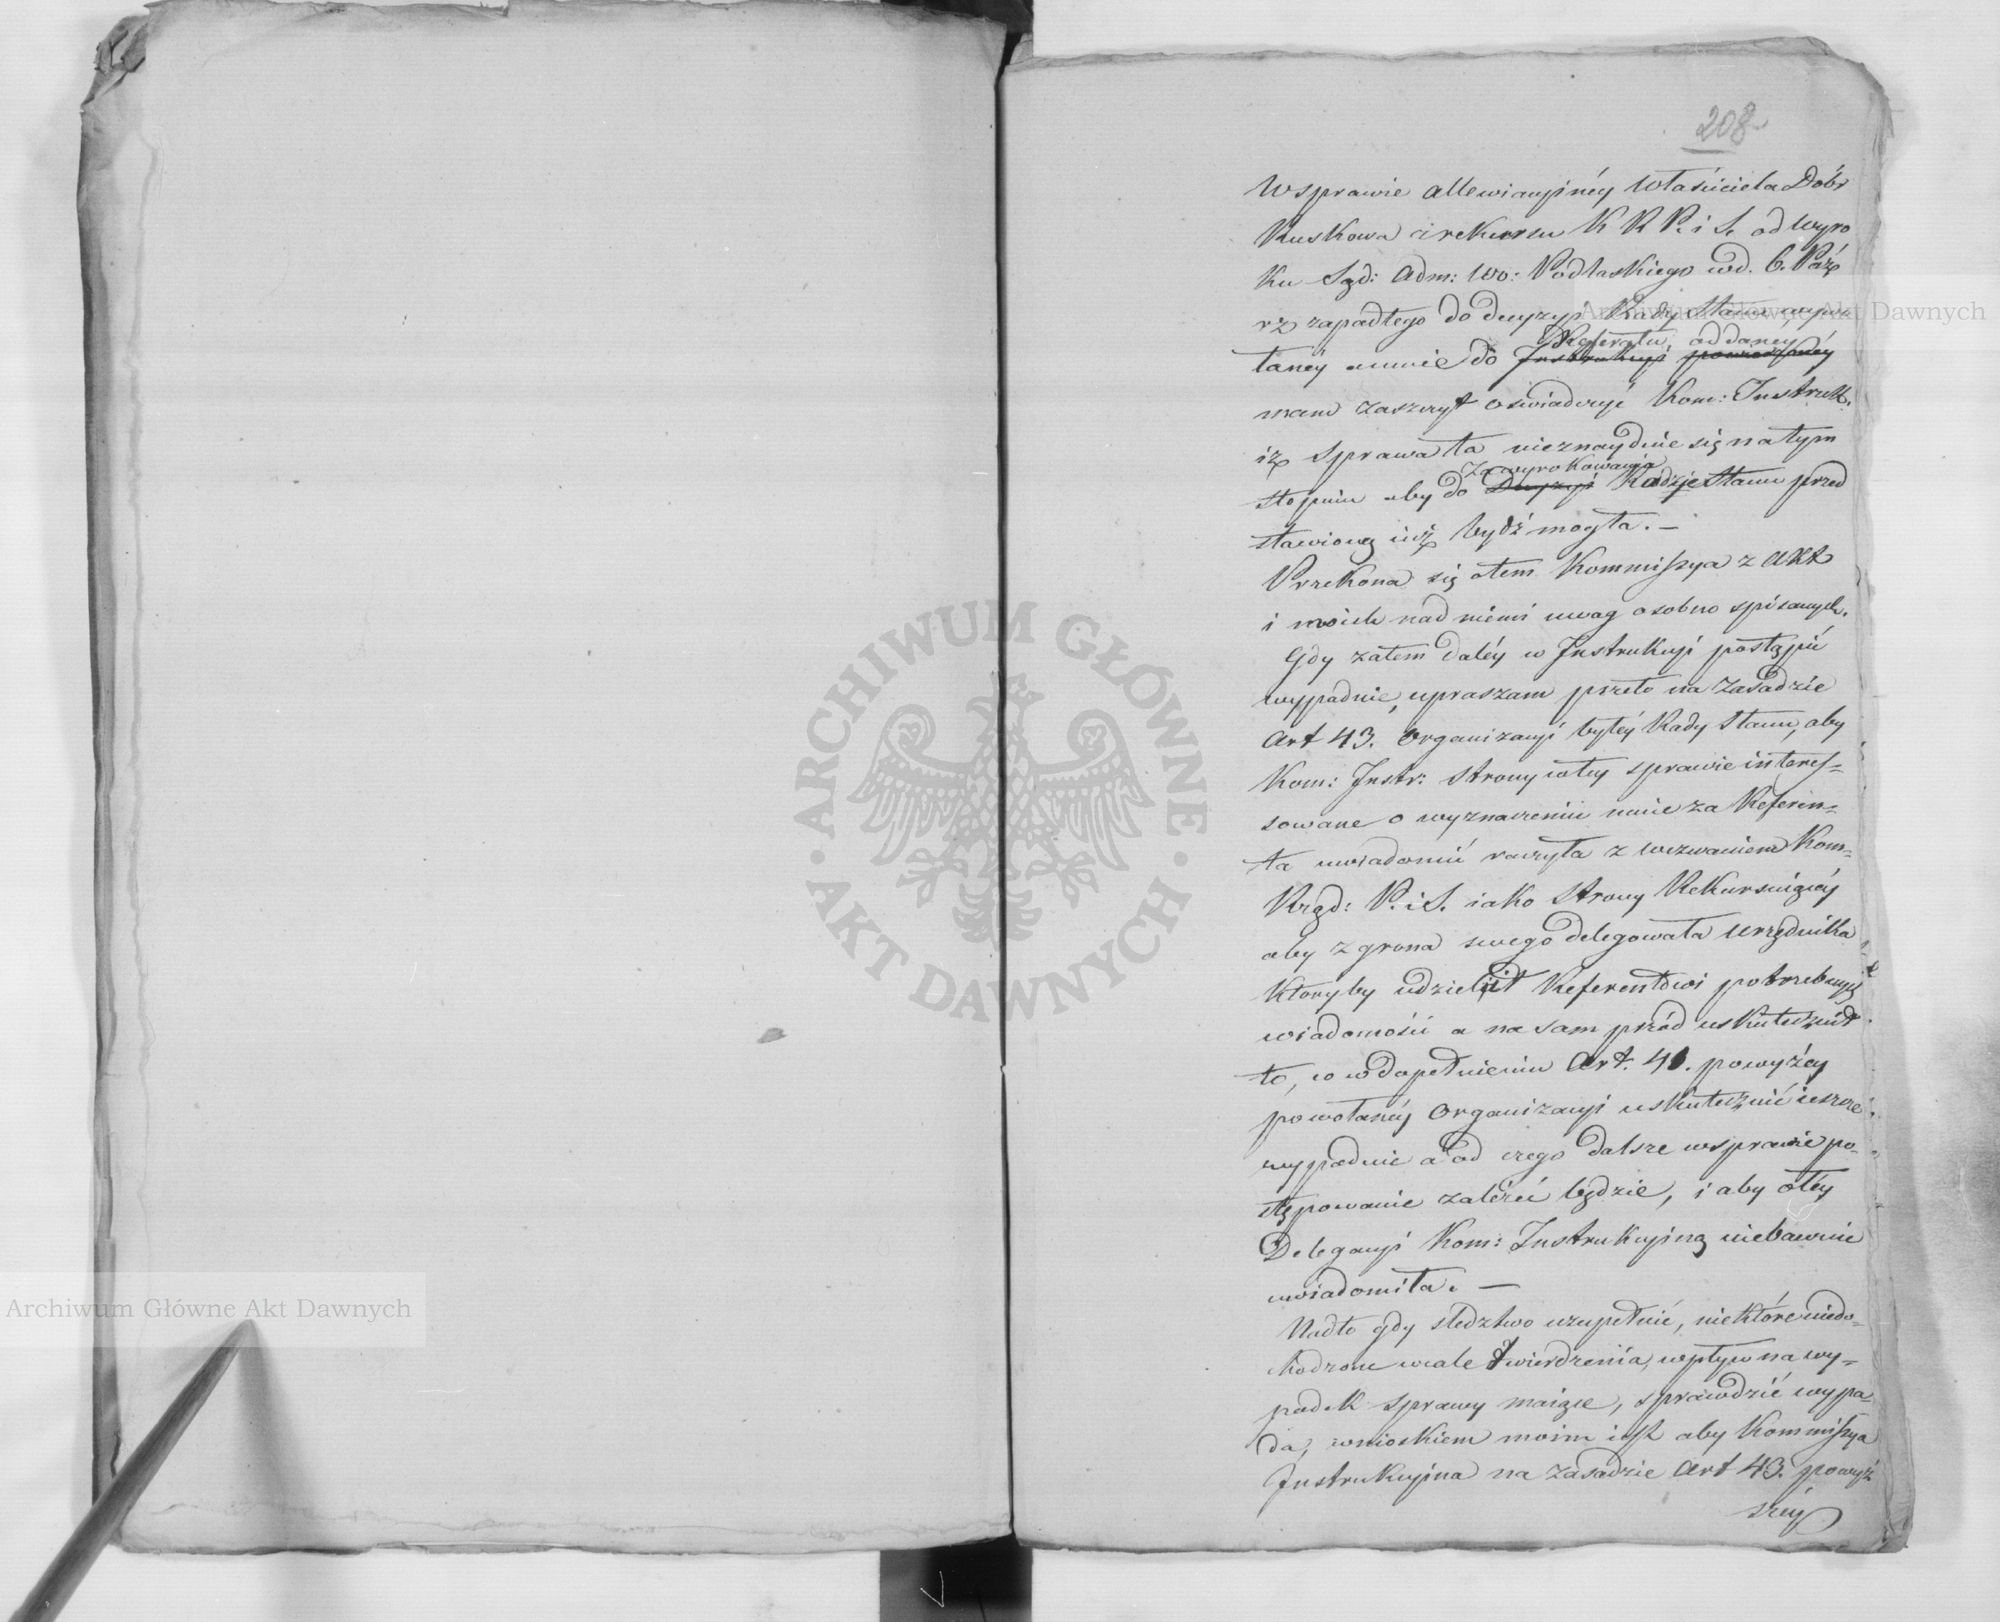 208
W sprawie allewiacyjnéy Właściciela Dóbr
Kuskowa z rekursu K R P. i S. od wyro
ku Sąd: Adm: Wo: Podlaskiego w d. 6. Paź
rz zapadłego do decyzyi Rady Stanu wywo
łanéy a mnie do Instrukcyi powierzonéy
Referatu oddaney
mam zaszczyt oświadczyć Kom: Instruk.
iż sprawa ta nieznayduie się na tym
stopniu aby do Decyzyi Radzie Stanu przed
zawyrokowania
stawioną iuż bydź mogła. —
Przekona się o tem Kommissya z Akt
i moich nad niemi uwag osobno spisanych.
Gdy zatem daléy w Instrukcyi postąpić
wypadnie, upraszam przeto na zasadzie
Art 43. Organizacyi byłéy Rady Stanu, aby
Kom: Instr: Strony w téy sprawie interes=
sowane o wyznaczeniu mnie za Referen=
ta uwiadomić raczyła z wezwaniem Kom=
Rząd: P. i S. iako Strony Rekursuiącéy
aby z grona swego delegowała Urzędnika
któryby udzielił Referentowi potrzebnych
wiadomości a na sam przód uskutecznił
to, co w dopełnieniu Art. 41. powyżéy
powołanéy Organizacyi uskutecznić ieszcze
wypadnie a od czego dalsze w sprawie po=
stępowanie zależeć będzie, i aby o téy
Delegacyi Kom: Instrukcyiną niebawnie
uwiadomiła. —
Nadto gdy śledztwo uzupełnić, niektóre niedo=
kodzone wcale twierdzenia, wpływ na wy=
padek sprawy maiące, sprawdzić wypa=
da, wnioskiem moim iest aby Kommissya
Instrukcyina na zasadzie Art 43. powyż
széy
Archiwum Główne Akt Dawnych
Archiwum Główne Akt Dawnych
ARCHIWUM GŁÓWNE · AKT DAWNYCH ·